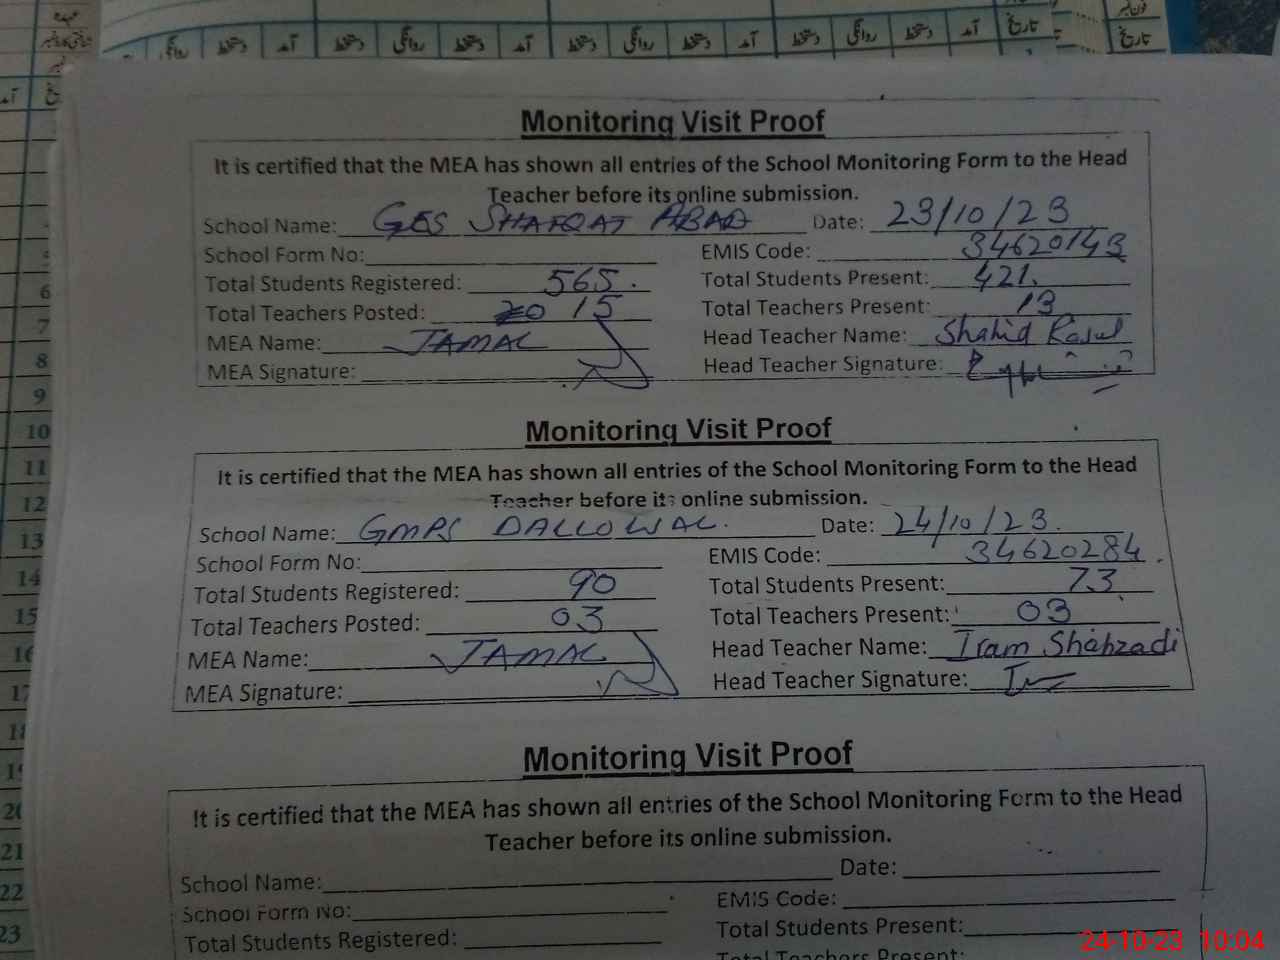 روانگی دستخط آمد دستخط روانگی دستخط آمد دستخط روانگی دستخط آمد دستخط روانگی دستخط آمد تاریخ تاریخ
Monitoring Visit Proof
It is certified that the MEA has shown all entries of the School Monitoring Form to the Head
Teacher before its online submission.
School Name: GES SHAFQAT ABAD Date: 23/10/23
School Form No: EMIS Code: 34620143
Total Students Registered: 565. Total Students Present: 421.
Total Teachers Posted: 15 Total Teachers Present: 13
MEA Name: JAMAL Head Teacher Name: Shahid Rasul
MEA Signature: Head Teacher Signature:
Monitoring Visit Proof
It is certified that the MEA has shown all entries of the School Monitoring Form to the Head
Teacher before its online submission.
School Name: GMPS DALLOWAL. Date: 24/10/23.
School Form No: EMIS Code: 34620284.
Total Students Registered: 90 Total Students Present: 73
Total Teachers Posted: 03 Total Teachers Present: 03
MEA Name: JAMAL Head Teacher Name: Iram Shahzadi
MEA Signature: Head Teacher Signature:
Monitoring Visit Proof
It is certified that the MEA has shown all entries of the School Monitoring Form to the Head
Teacher before its online submission.
School Name: Date:
School Form No: EMIS Code:
Total Students Registered: Total Students Present:
Total Teachers Present:
6
7
8
9
10
11
12
13
14
15
16
17
18
19
20
21
22
23
24-10-23 10:04